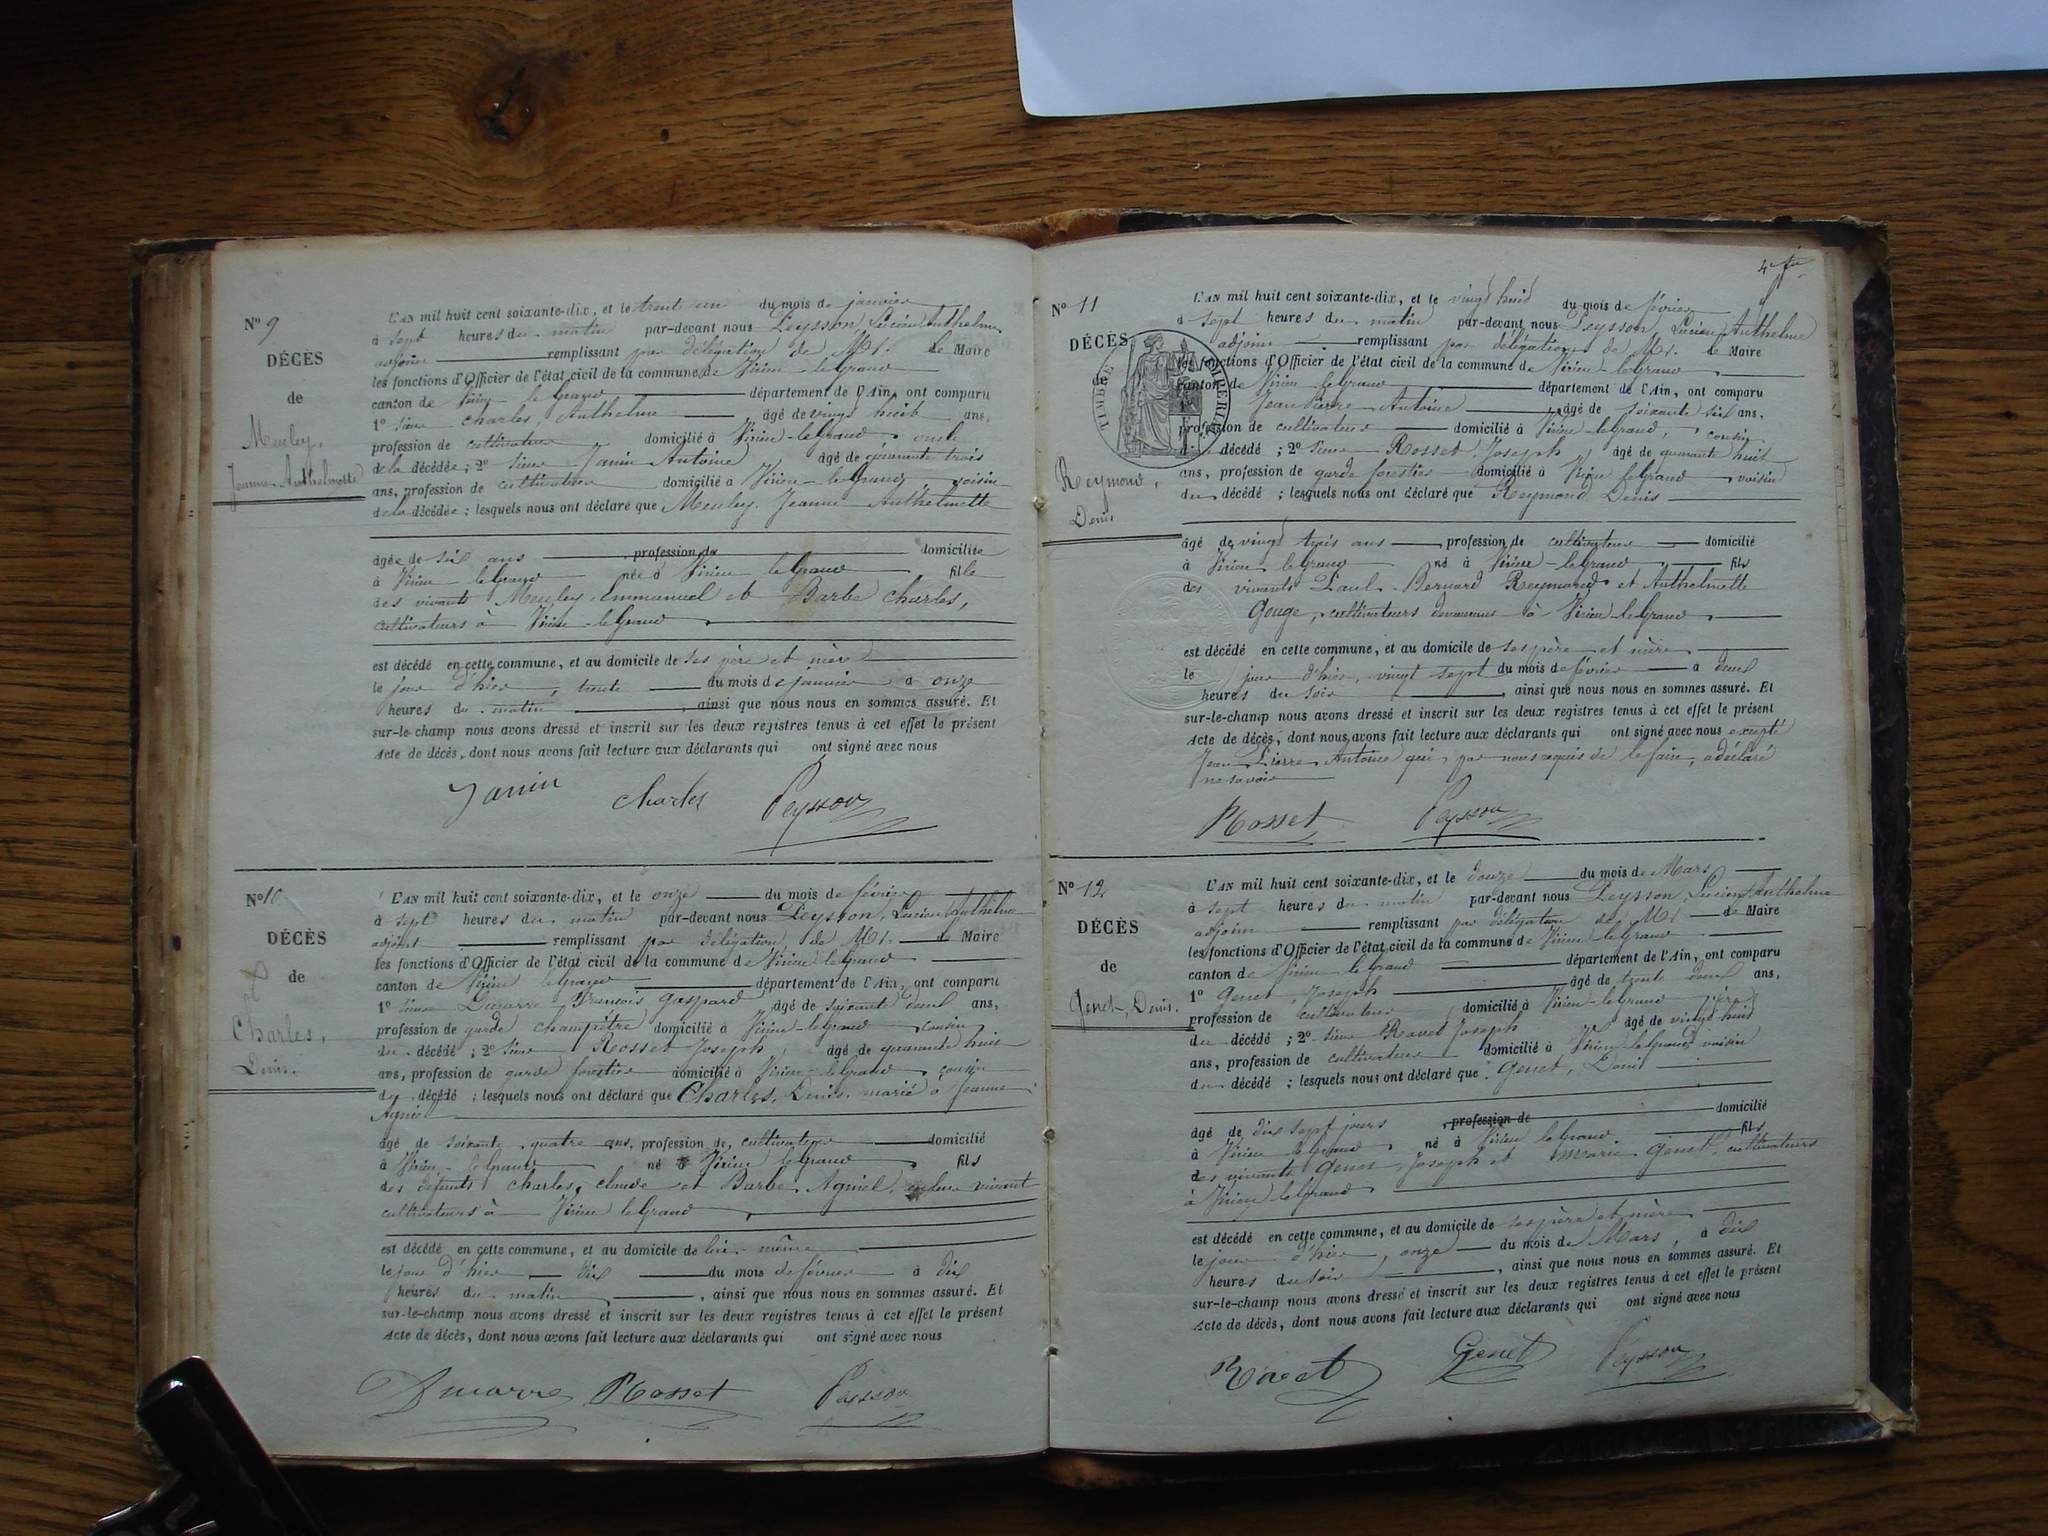 N° 9
DÉCÈS
de
Meuley,
Jeanne Anthelmette
L'AN mil huit cent soixante-dix, et le trente un du mois de janvier
à sept heures du matin par-devant nous Peysson, Lucien Anthelme
adjoint remplissant par délégation de Mr. le Maire
les fonctions d'Officier de l'état civil de la commune de Virieu-le-Grand
canton de Virieu-le-Grand département de l'Ain, ont comparu
1° sieur Charles, Anthelme âgé de vingt huit ans,
profession de cultivateur domicilié à Virieu-le-Grand, oncle
de la décédée; 2° sieur Janin Antoine âgé de quarante trois
ans, profession de cultivateur domicilié à Virieu-le-Grand, voisin
de la décédée; lesquels nous ont déclaré que Meuley, Jeanne Anthelmette
âgée de six ans profession de domiciliée
à Virieu le Grand née à Virieu le Grand fille
des vivants Meuley Emmanuel et Barbe Charles,
cultivateurs à Virieu-le-Grand
est décédé en cette commune, et au domicile de ses père et mère
le jour d'hier, trente du mois de janvier à onze
heures du matin, ainsi que nous nous en sommes assuré. Et
sur-le-champ nous avons dressé et inscrit sur les deux registres tenus à cet effet le présent
acte de décès, dont nous avons fait lecture aux déclarants qui ont signé avec nous
Janin Charles Peysson
N° 10
DÉCÈS
de
Charles,
Denis.
L'AN mil huit cent soixante-dix, et le onze du mois de février
à sept heures du matin par-devant nous Peysson, Lucien Anthelme
adjoint remplissant par délégation de Mr. le Maire
les fonctions d'Officier de l'état civil de la commune de Virieu-le-Grand
canton de Virieu le Grand département de l'Ain, ont comparu
1° sieur Ducarre François Gaspard âgé de soixante deux ans,
profession de garde champêtre domicilié à Virieu-le-Grand cousin
du décédé; 2° sieur Rosset Joseph âgé de quarante huit
ans, profession de garde forestier domicilié à Virieu-le-Grand cousin
du décédé; lesquels nous ont déclaré que Charles, Denis, marié à Jeanne
Agniel
âgé de soixante quatre ans, profession de cultivateur domicilié
à Virieu-le-Grand né à Virieu le Grand fils
des défunts Charles, Claude et Barbe Agniel, vivant
cultivateurs à Virieu le Grand
est décédé en cette commune, et au domicile de lui-même
le jour d'hier dix du mois de février à dix
heures du matin, ainsi que nous nous en sommes assuré. Et
sur-le-champ nous avons dressé et inscrit sur les deux registres tenus à cet effet le présent
acte de décès, dont nous avons fait lecture aux déclarants qui ont signé avec nous
Ducarre Rosset Peysson
4
N° 11
DÉCÈS
TIMBRE IMPÉRIAL
Reymond,
Denis
L'AN mil huit cent soixante-dix, et le vingt huit du mois de février
à sept heures du matin par-devant nous Peysson, Lucien Anthelme
adjoint remplissant par délégation de Mr. le Maire
les fonctions d'Officier de l'état civil de la commune de Virieu-le-Grand
canton de Virieu-le-Grand département de l'Ain, ont comparu
Jean Pierre Antoine âgé de soixante six ans,
profession de cultivateur domicilié à Virieu-le-Grand, cousin
du décédé; 2° sieur Rosset Joseph âgé de quarante huit
ans, profession de garde forestier domicilié à Virieu le Grand voisin
du décédé; lesquels nous ont déclaré que Reymond Denis
âgé de vingt trois ans profession de cultivateur domicilié
à Virieu le Grand né à Virieu-le-Grand fils
des vivants Paul Bernard Reymond et Anthelmette
Gouge, cultivateurs à Virieu-le-Grand
est décédé en cette commune, et au domicile de ses père et mère
le jour d'hier, vingt sept du mois de février à deux
heures du soir, ainsi que nous nous en sommes assuré. Et
sur-le-champ nous avons dressé et inscrit sur les deux registres tenus à cet effet le présent
acte de décès, dont nous avons fait lecture aux déclarants qui ont signé avec nous excepté
Jean Pierre Antoine qui, par nous requis de le faire, a déclaré
ne savoir
Rosset Peysson
N° 12
DÉCÈS
de
Genet, Denis.
L'AN mil huit cent soixante-dix, et le douze du mois de Mars
à sept heures du matin par-devant nous Peysson, Lucien Anthelme
adjoint remplissant par délégation de Mr. le Maire
les fonctions d'Officier de l'état civil de la commune de Virieu-le-Grand
canton de Virieu le Grand département de l'Ain, ont comparu
1° Genet, Joseph âgé de trente deux ans,
profession de cultivateur domicilié à Virieu-le-Grand père
du décédé; 2° sieur Ravet Joseph âgé de vingt huit
ans, profession de cultivateur domicilié à Virieu-le-Grand voisin
du décédé; lesquels nous ont déclaré que Genet, Denis
âgé de dix sept jours profession de domicilié
à Virieu le Grand né à Virieu le Grand fils
des vivants Genet, Joseph et Marie Genet, cultivateurs
à Virieu le Grand
est décédé en cette commune, et au domicile de ses père et mère
le jour d'hier, onze du mois de Mars, à dix
heures du soir, ainsi que nous nous en sommes assuré. Et
sur-le-champ nous avons dressé et inscrit sur les deux registres tenus à cet effet le présent
acte de décès, dont nous avons fait lecture aux déclarants qui ont signé avec nous
Ravet Genet Peysson